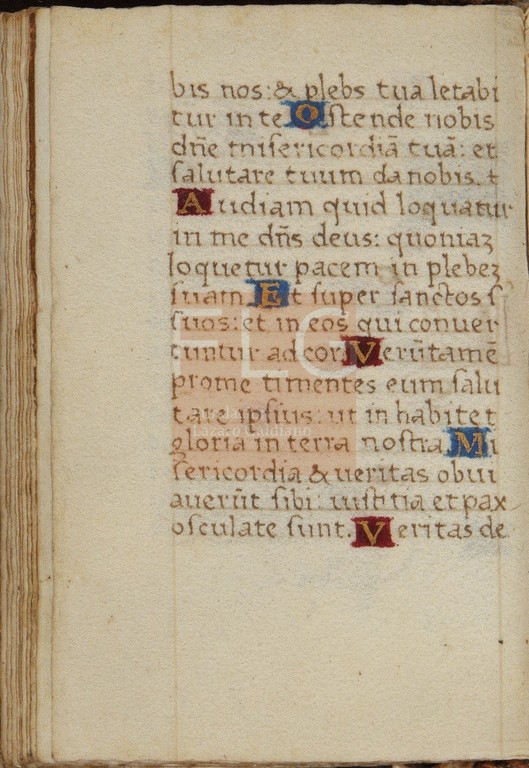 bis nos: & plebs tua letabi
tur in te Ostende nobis
dñe misericordiã tuã: et
salutare tuum da nobis. t
Audiam quid loquatur
in me dñs deus: quoniaʒ
loquetur pacem in plebeʒ
suam. Et super sanctos s
suos: et in eos qui conuer
tuntur ad cor. Verũtamẽ
prope timentes eum salu
tare ipsius: ut in habitet
gloria in terra nostra. Mi
sericordia & ueritas obui
auerũt sibi: iustitia et pax
osculate sunt. Veritas de
FLG
Fundación
Lázaro Galdiano